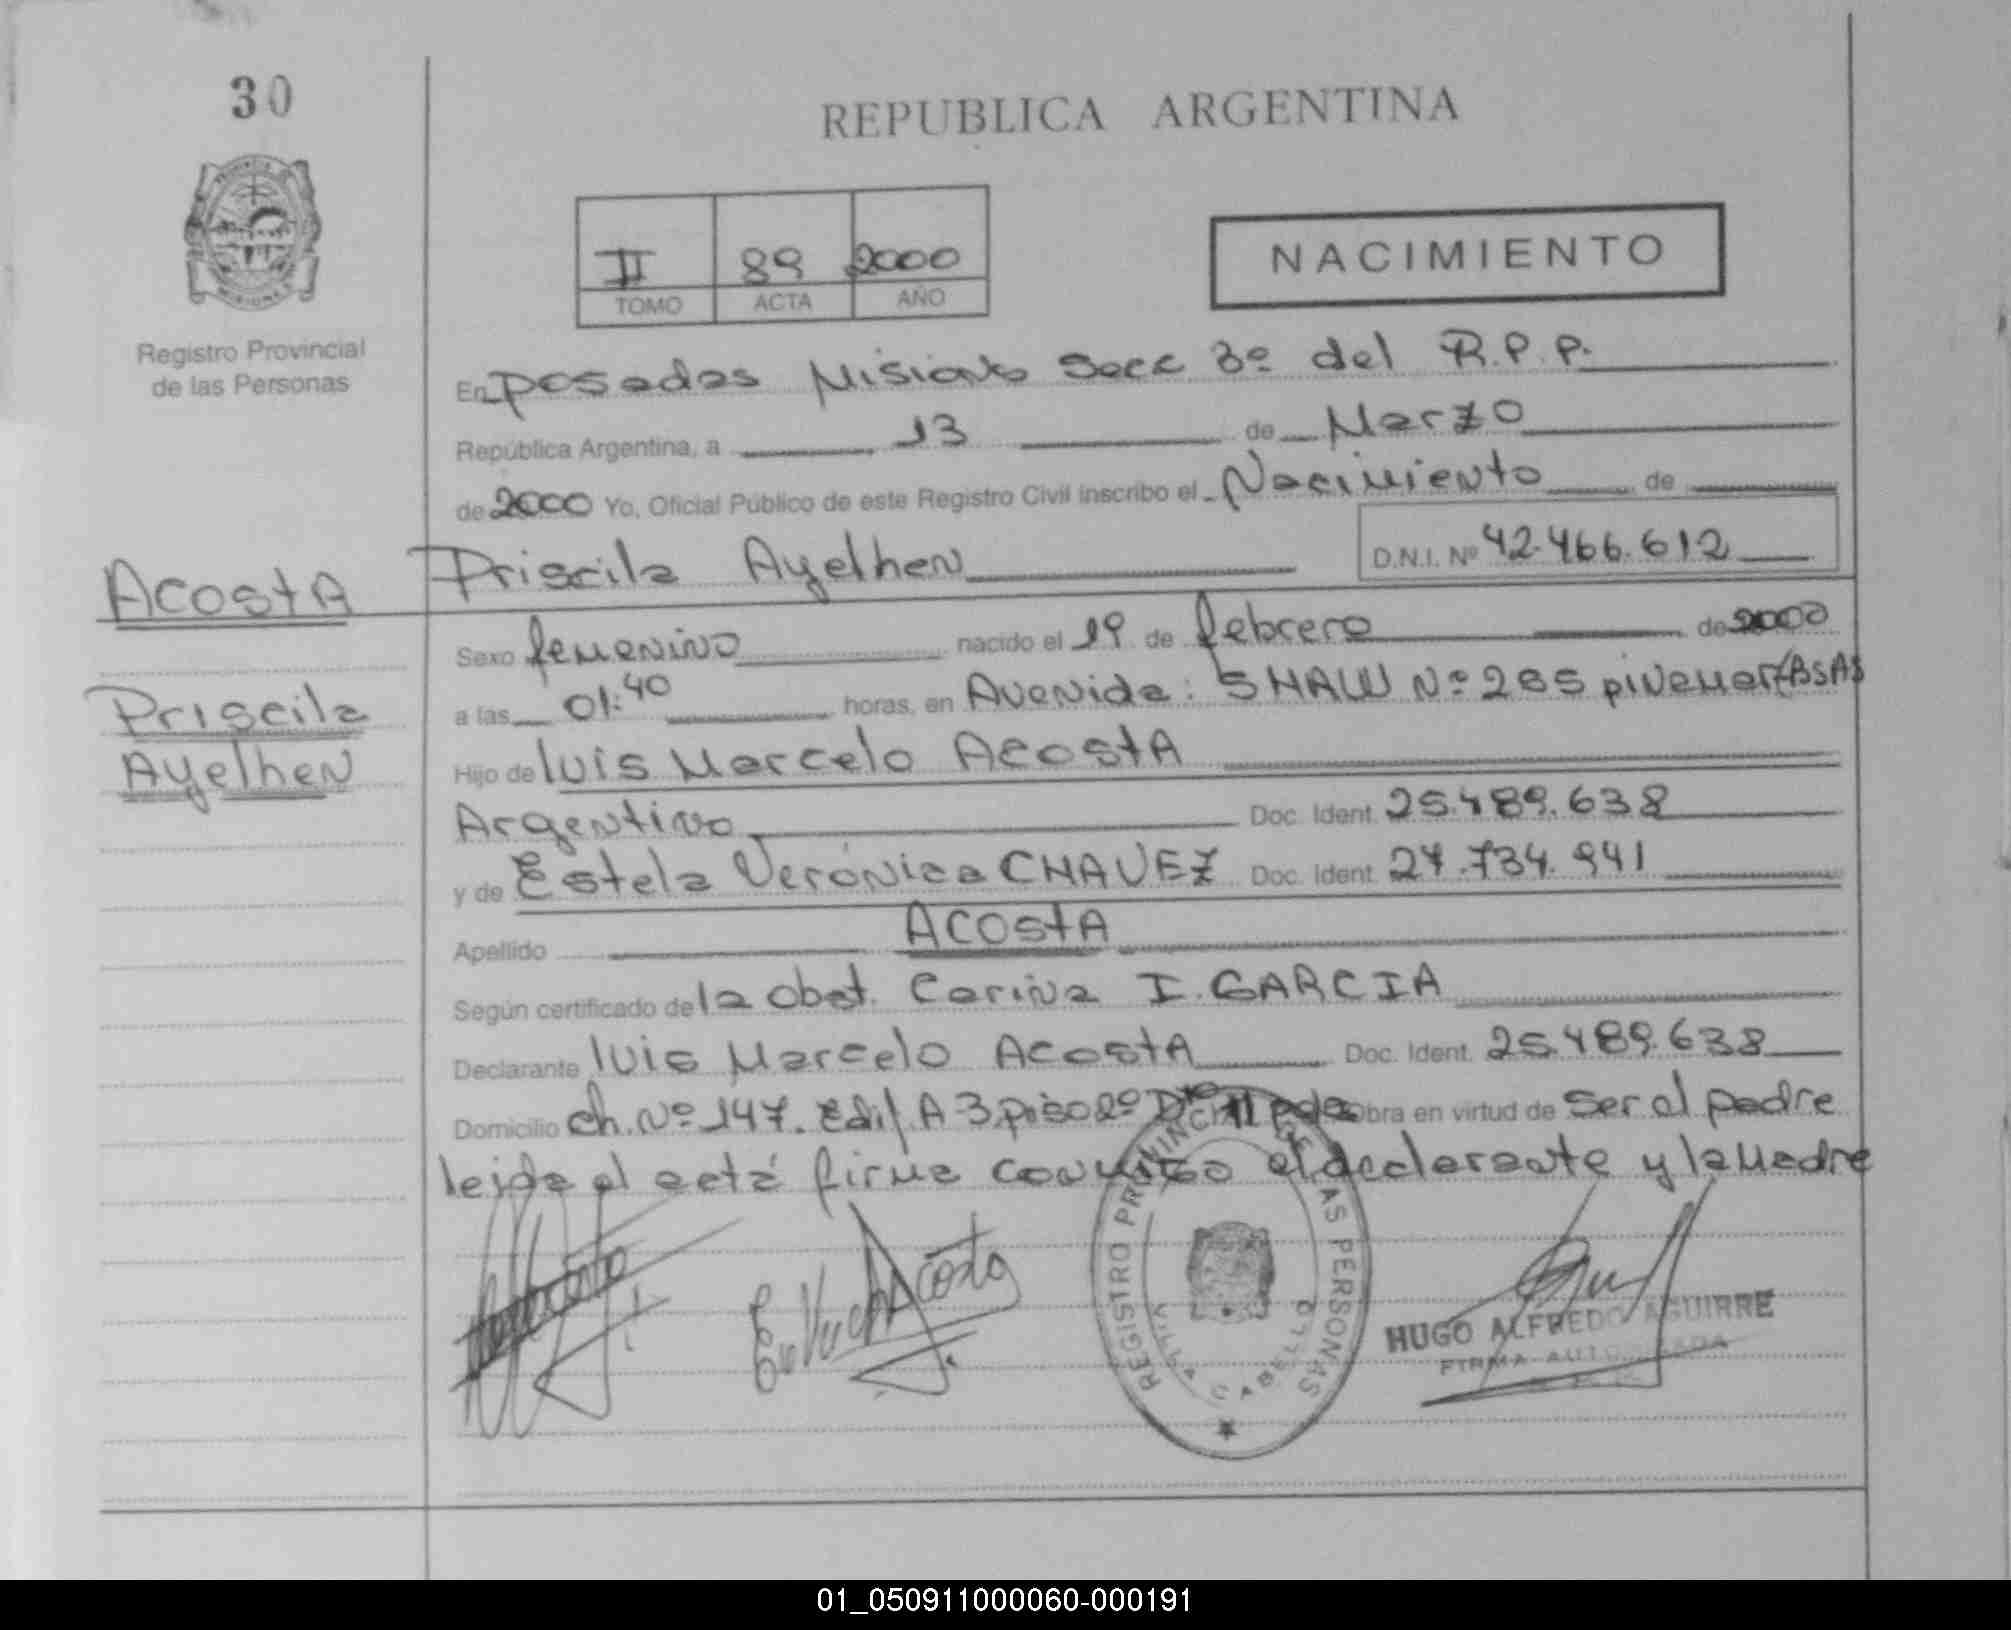 30
REPUBLICA ARGENTINA
II 89 2000
TOMO ACTA AÑO
NACIMIENTO
Registro Provincial
de las Personas
En Posadas Misiones Secc 3º del R.P.P.
República Argentina, a 13 de Marzo
de 2000 Yo, Oficial Público de este Registro Civil inscribo el Nacimiento de
Priscila Ayelhen D.N.I. Nº 42.466.612
ACOSTA
Priscila
Ayelhen
Sexo femenino nacido el 19 de febrero de 2000
a las 01:40 horas, en Avenida: SHAW Nº 285 pinamar (BSAS
Hijo de luis Marcelo ACOSTA
Argentino Doc. Ident. 25.489.638
y de Estela Verónica CHAVEZ Doc. Ident. 24.734.941
Apellido ACOSTA
Según certificado de la obst. Carina I. GARCIA
Declarante luis Marcelo ACOSTA Doc. Ident. 25.489.638
Domicilio ch. Nº 147. Edif. A-3 piso 2º Obra en virtud de ser el padre
leida el acta firma conmigo el declarante y la Madre
Acosta
REGISTRO PROVINCIAL DE LAS PERSONAS
VILLA CABELLO
HUGO ALFREDO AGUIRRE
FIRMA AUTORIZADA
01_050911000060-000191